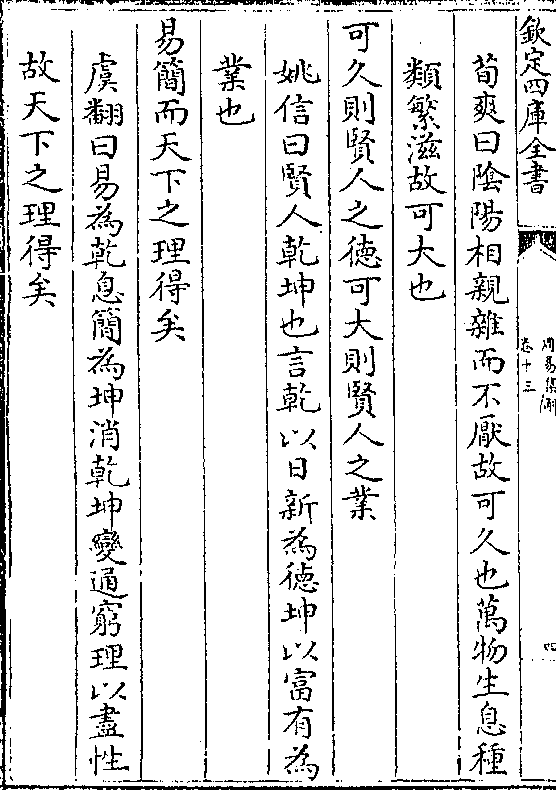 欽定四庫全書
周易集解
卷十三
四
荀爽曰陰陽相親雜而不厭故可久也萬物生息種
類繁滋故可大也
可久則賢人之德可大則賢人之業
姚信曰賢人乾坤也言乾以日新為德坤以富有為
業也
易簡而天下之理得矣
虞翻曰易為乾息簡為坤消乾坤變通窮理以盡性
故天下之理得矣